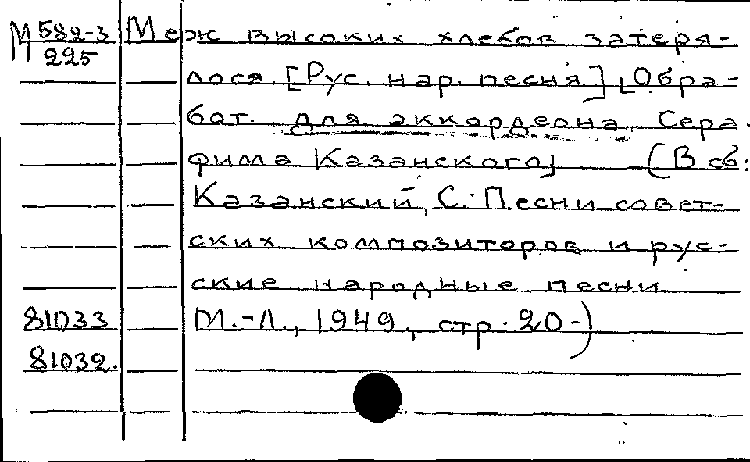 М 582-3 Меж высоких хлебов затеря-
225
лося. [Рус. нар. песня] [Обра-
бот. для аккордеона Сера-
фима Казанского] (В сб.:
Казанский, С. Песни совет-
ских композиторов и рус-
ские народные песни
81033 М.-Л., 1949, стр. 20-)
81032.